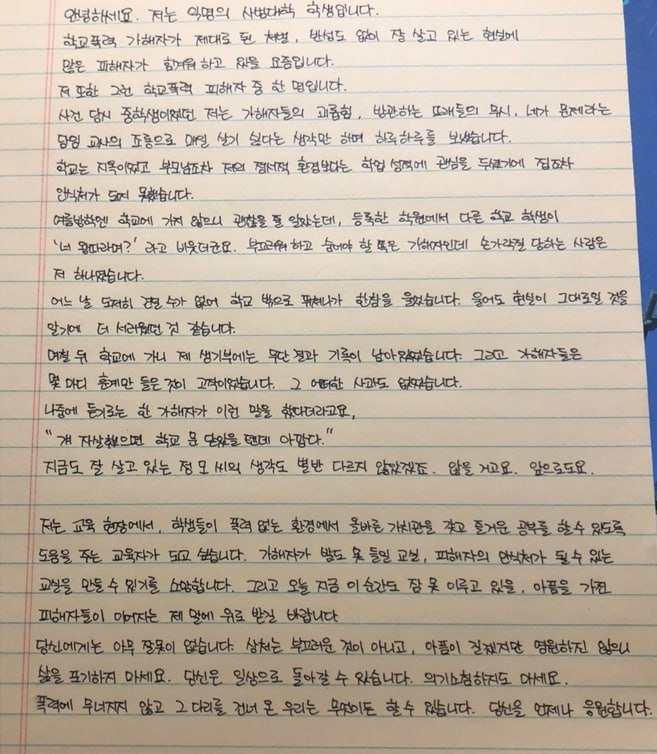 안녕하세요. 저는 익명의 사범대학 학생입니다.
학교폭력 가해자가 제대로 된 처벌, 반성도 없이 잘 살고 있는 현실에
많은 피해자가 힘겨워 하고 있을 요즘입니다.
저 또한 그런 학교폭력 피해자 중 한 명입니다.
사건 당시 중학생이었던 저는 가해자들의 괴롭힘, 방관하는 또래들의 무시, 네가 문제라는
담임 교사의 조롱으로 매일 살기 싫다는 생각만 하며 하루하루를 보냈습니다.
학교는 지옥이었고 부모님조차 저의 정서적 환경보다는 학업 성적에 관심을 두셨기에 집조차
안식처가 되지 못했습니다.
여름방학엔 학교에 가지 않으니 괜찮을 줄 알았는데, 등록한 학원에서 다른 학교 학생이
'너 왕따라며?' 라고 비웃더군요. 부끄러워 하고 숨어야 할 쪽은 가해자인데 손가락질 당하는 사람은
저 하나였습니다.
어느 날 도저히 견딜 수가 없어 학교 밖으로 뛰쳐나가 한참을 울었습니다. 울어도 현실이 그대로일 것을
알기에 더 서러웠던 것 같습니다.
며칠 뒤 학교에 가니 제 생기부에는 무단 결과 기록이 남아있었습니다. 그리고 가해자들은
몇 마디 훈계만 들은 것이 고작이었습니다. 그 어떠한 사과도 없었습니다.
나중에 듣기로는 한 가해자가 이런 말을 했다더라고요,
"걔 자살했으면 학교 문 닫았을 텐데 아깝다."
지금도 잘 살고 있는 정 모 씨의 생각도 별반 다르지 않았겠죠. 않을 거고요. 앞으로도요.
저는 교육 현장에서, 학생들이 폭력 없는 환경에서 올바른 가치관을 갖고 즐거운 공부를 할 수 있도록
도움을 주는 교육자가 되고 싶습니다. 가해자가 발도 못 들일 교실, 피해자의 안식처가 될 수 있는
교실을 만들 수 있기를 소망합니다. 그리고 오늘 지금 이 순간도 잠 못 이루고 있을, 아픔을 가진
피해자들이 이어지는 제 말에 위로 받길 바랍니다
당신에게는 아무 잘못이 없습니다. 상처는 부끄러운 것이 아니고, 아픔이 길겠지만 영원하진 않으니
삶을 포기하지 마세요. 당신은 일상으로 돌아갈 수 있습니다. 의기소침하지도 마세요.
폭력에 무너지지 않고 그 다리를 건너 온 우리는 무엇이든 할 수 있습니다. 당신을 언제나 응원합니다.